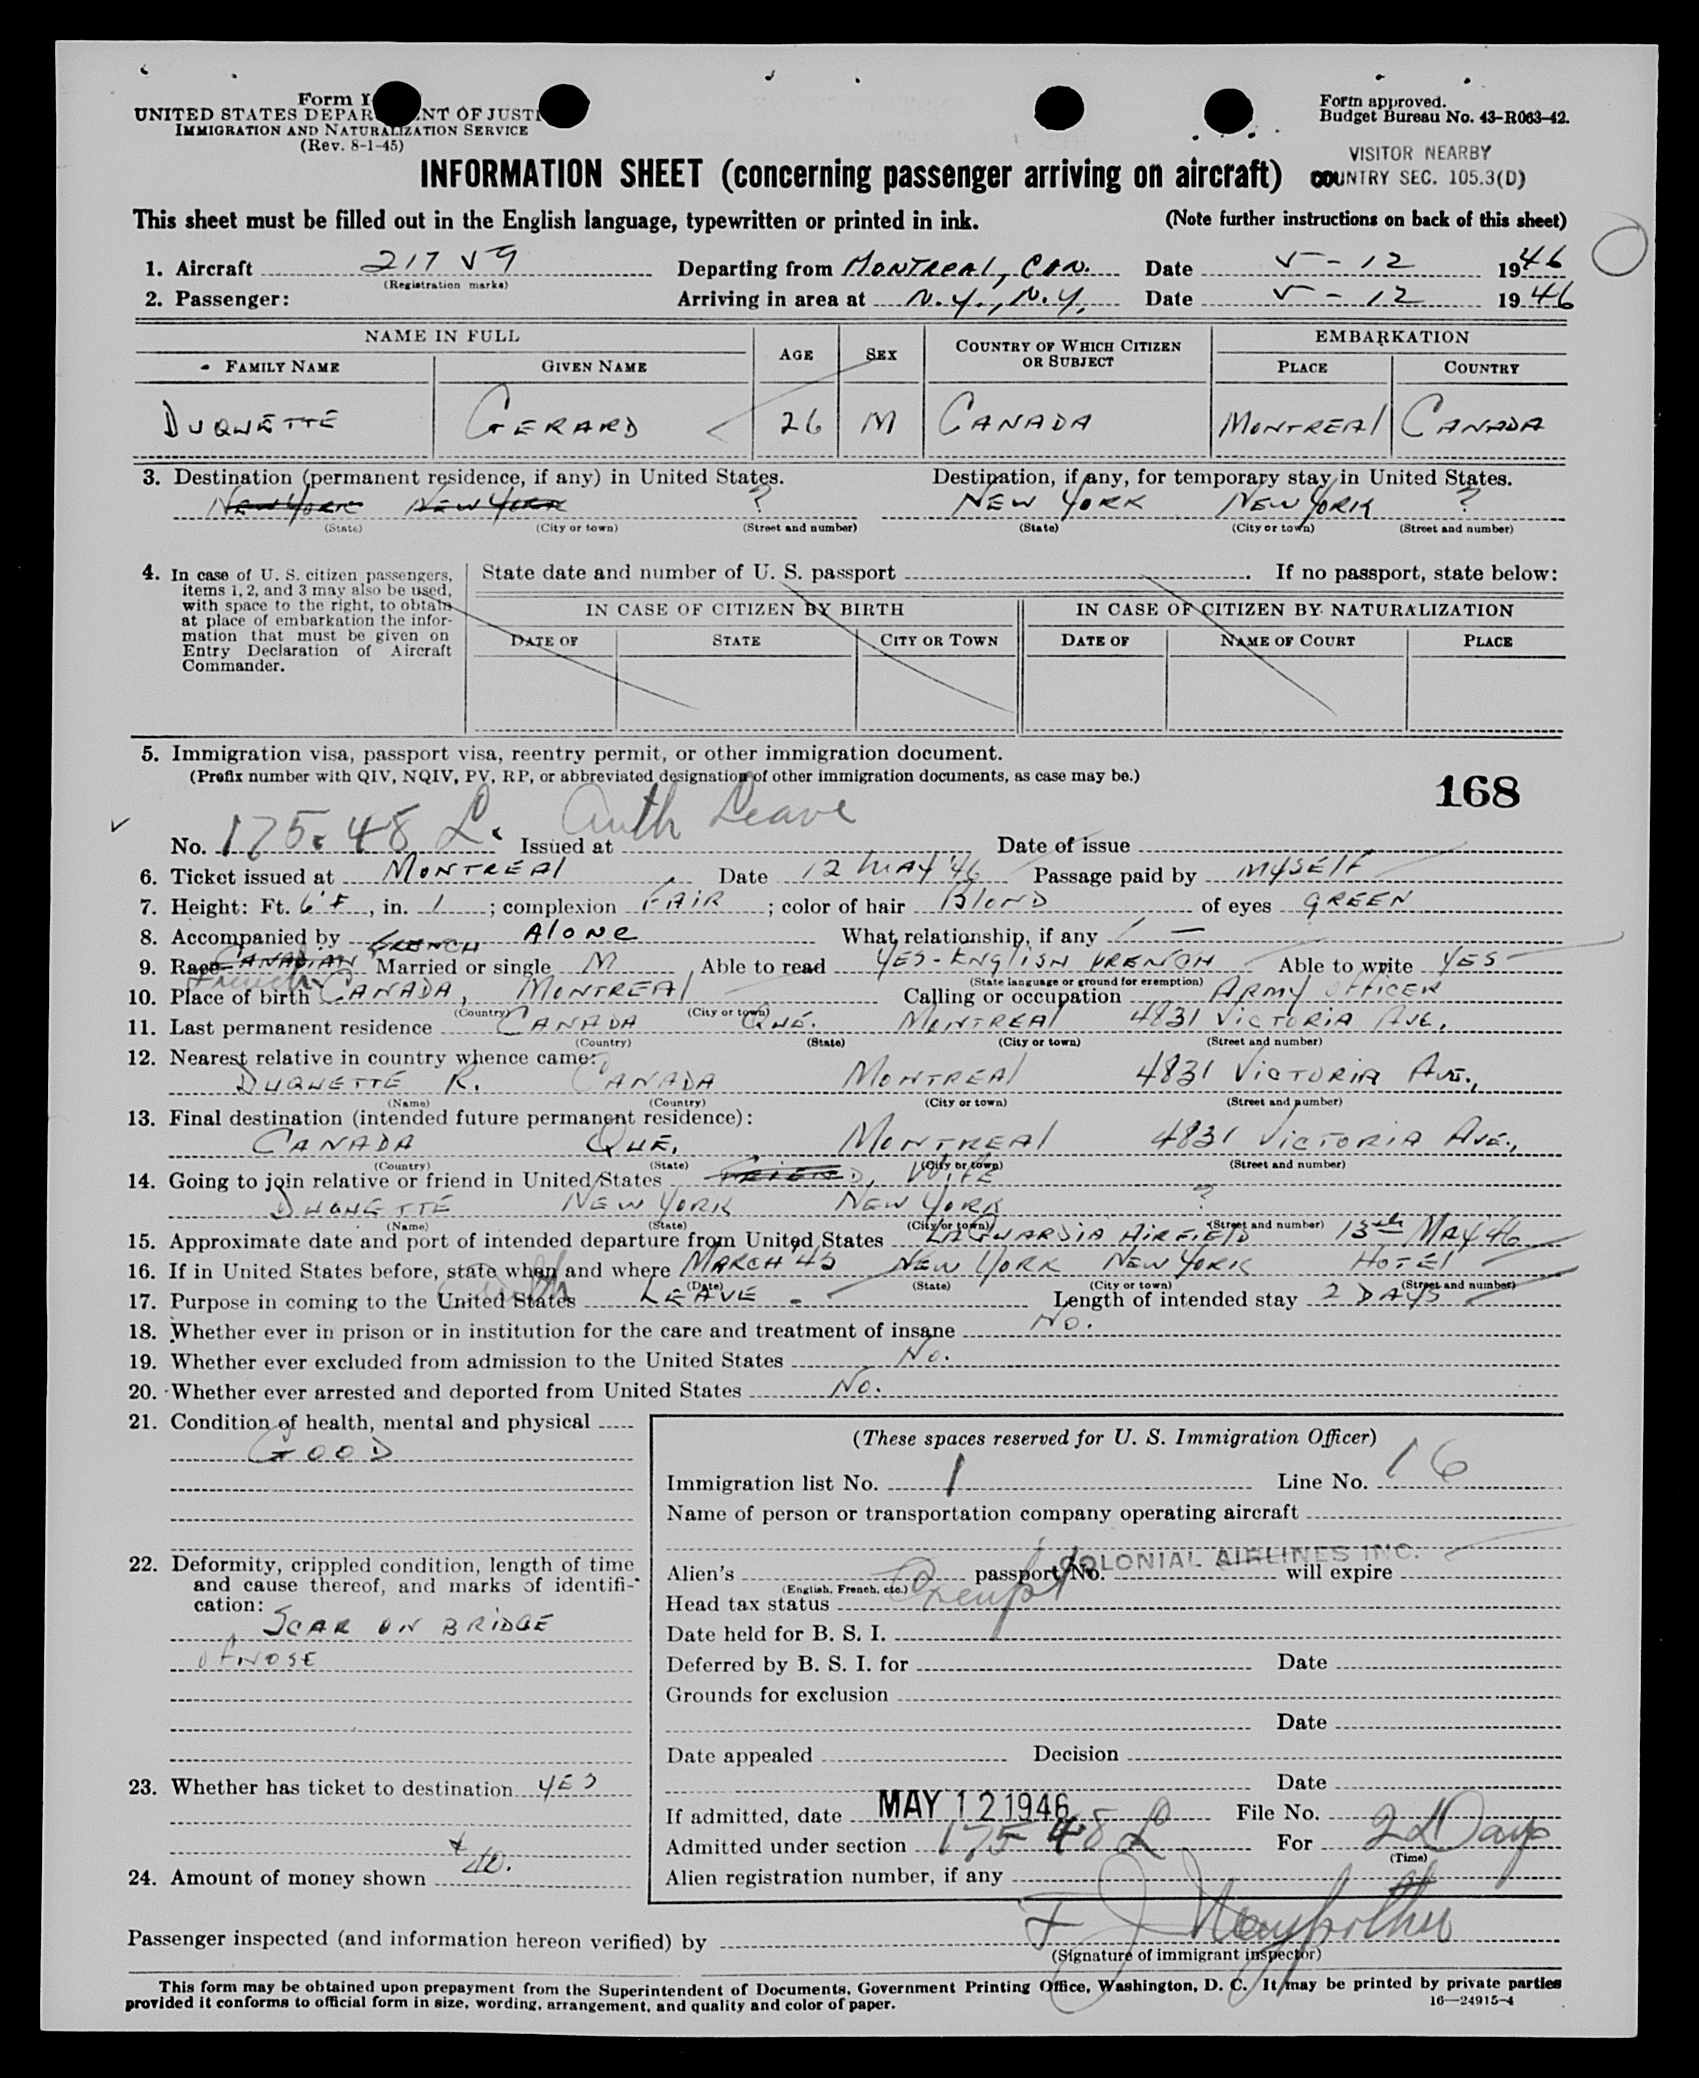 Form I
UNITED STATES DEPAR NT OF JUSTI
IMMIGRATION AND NATURALIZATION SERVICE
(Rev. 8-1-45)
Form approved.
Budget Bureau No. 43-R063-42.
VISITOR NEARBY
COUNTRY SEC. 105.3(D)
INFORMATION SHEET (concerning passenger arriving on aircraft)
This sheet must be filled out in the English language, typewritten or printed in ink. (Note further instructions on back of this sheet)
1. Aircraft 217 V9 Departing from MONTREAL, CAN. Date V - 12 1946
(Registration marks)
2. Passenger: Arriving in area at N.Y., N.Y. Date V - 12 1946
NAME IN FULL EMBARKATION
FAMILY NAME GIVEN NAME AGE SEX COUNTRY OF WHICH CITIZEN OR SUBJECT PLACE COUNTRY
DUQUETTE GERARD 26 M CANADA MONTREAL CANADA
3. Destination (permanent residence, if any) in United States. Destination, if any, for temporary stay in United States.
NEW YORK NEW YORK ? NEW YORK NEW YORK ?
(State) (City or town) (Street and number) (State) (City or town) (Street and number)
4. In case of U. S. citizen passengers, items 1, 2, and 3 may also be used, with space to the right, to obtain at place of embarkation the information that must be given on Entry Declaration of Aircraft Commander.
State date and number of U. S. passport . If no passport, state below:
IN CASE OF CITIZEN BY BIRTH IN CASE OF CITIZEN BY NATURALIZATION
DATE OF STATE CITY OR TOWN DATE OF NAME OF COURT PLACE
5. Immigration visa, passport visa, reentry permit, or other immigration document.
(Prefix number with QIV, NQIV, PV, RP, or abbreviated designation of other immigration documents, as case may be.)
168
No. 175.48 L. Issued at Auth Leave Date of issue
6. Ticket issued at MONTREAL Date 12 MAY '46 Passage paid by MYSELF
7. Height: Ft. 6'F, in. 1; complexion FAIR; color of hair BLOND of eyes GREEN
8. Accompanied by Alone What relationship, if any —
FRENCH
9. Race CANADIAN Married or single M Able to read YES - ENGLISH FRENCH Able to write YES
French (State language or ground for exemption)
10. Place of birth CANADA, MONTREAL Calling or occupation ARMY OFFICER
(Country) (City or town)
11. Last permanent residence CANADA QUE. MONTREAL 4831 VICTORIA AVE.
(Country) (State) (City or town) (Street and number)
12. Nearest relative in country whence came:
DUQUETTE R. CANADA MONTREAL 4831 VICTORIA AVE.,
(Name) (Country) (City or town) (Street and number)
13. Final destination (intended future permanent residence):
CANADA QUE, MONTREAL 4831 VICTORIA AVE.,
(Country) (State) (City or town) (Street and number)
14. Going to join relative or friend in United States FRIEND, WIFE
DUQUETTE NEW YORK NEW YORK ?
(Name) (State) (City or town) (Street and number)
15. Approximate date and port of intended departure from United States LAGUARDIA AIRFIELD 13th MAY '46
16. If in United States before, state when and where MARCH 45 NEW YORK NEW YORK HOTEL
(Date) (State) (City or town) (Street and number)
17. Purpose in coming to the United States Auth LEAVE - Length of intended stay 2 DAYS
18. Whether ever in prison or in institution for the care and treatment of insane No.
19. Whether ever excluded from admission to the United States No.
20. Whether ever arrested and deported from United States No.
21. Condition of health, mental and physical
GOOD
22. Deformity, crippled condition, length of time and cause thereof, and marks of identification:
SCAR ON BRIDGE
OF NOSE
23. Whether has ticket to destination YES
24. Amount of money shown
(These spaces reserved for U. S. Immigration Officer)
Immigration list No. 1 Line No. 16
Name of person or transportation company operating aircraft
COLONIAL AIRLINES INC.
Alien's passport No. will expire
(English, French, etc.)
Head tax status Exempt
Date held for B. S. I.
Deferred by B. S. I. for Date
Grounds for exclusion
Date
Date appealed Decision
Date
If admitted, date MAY 12 1946 File No.
Admitted under section 175 48 L For 2 Days
(Time)
Alien registration number, if any
Passenger inspected (and information hereon verified) by
(Signature of immigrant inspector)
This form may be obtained upon prepayment from the Superintendent of Documents, Government Printing Office, Washington, D. C. It may be printed by private parties
provided it conforms to official form in size, wording, arrangement, and quality and color of paper.
16—24915-4